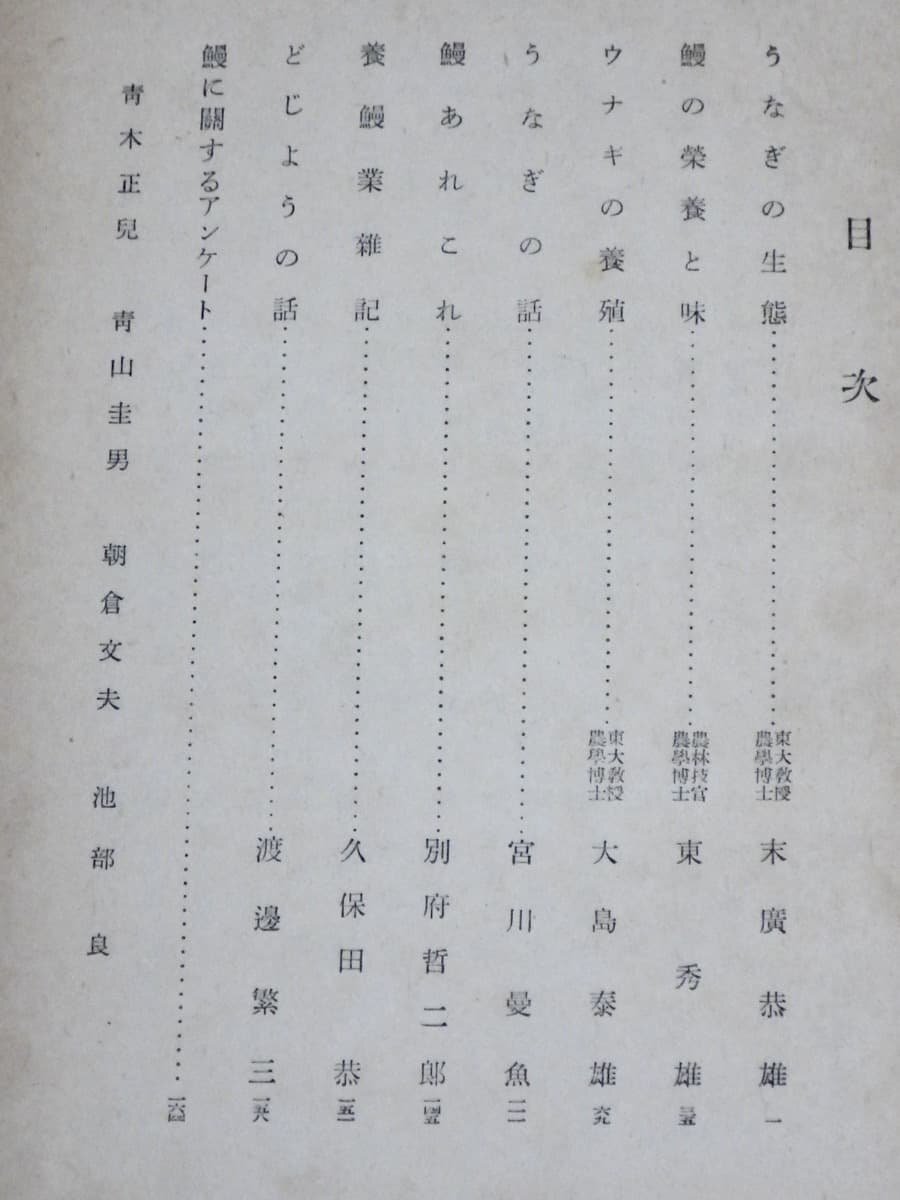 目次
うなぎの生態……………東大教授 農學博士 末廣恭雄 一
鰻の榮養と味……………農林技官 農學博士 東秀雄 三五
ウナギの養殖……………東大教授 農學博士 大島泰雄 六九
うなぎの話……………宮川曼魚 一一一
鰻あれこれ……………別府哲二郎 一四五
養鰻業雜記……………久保田恭 一五一
どじようの話……………渡邊繁三 一五八
鰻に關するアンケート……………一六四
靑木正兒 靑山圭男 朝倉文夫 池部良